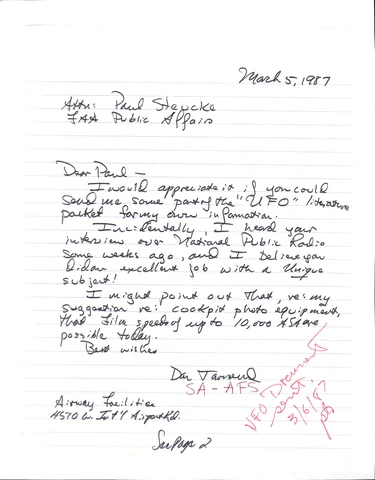 March 5, 1987
Attn: Paul Steucke
FAA Public Affairs
Dear Paul —
I would appreciate it if you could
send me some part of the "UFO" literature
packet for my own information.
Incidentally, I heard your
interview over National Public Radio
some weeks ago, and I believe you
did an excellent job with a unique
subject!
I might point out that, re: my
suggestion re: cockpit photo equipment,
that film speeds of up to 10,000 ASA are
possible today.
Best wishes
Dan
SA-AFS
Airway Facilities
4510 W. Int'l Airport Rd.
See page 2
UFO Document
sent.
3/6/87